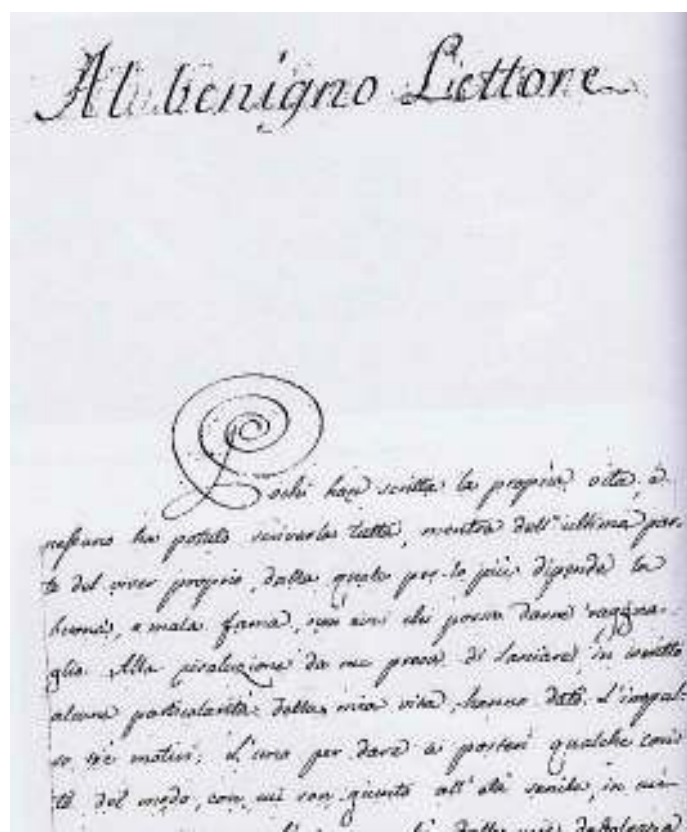 Al benigno Lettore
Pochi han scritta la propria vita, e
nessuno ha potuto scriverla tutta, mentre dell'ultima par-
te del viver proprio, dalla quale per lo più dipende la
buona, e mala fama, non evvi chi possa darne raggua-
glio. Alla risoluzione da me presa di lasciare in iscritto
alcune particolarità della mia vita, hanno dato l'impul-
so tre motivi. L'uno per dare a' posteri qualche
del modo, con cui son giunto all'età senile, in cui
dalla mia debolezza